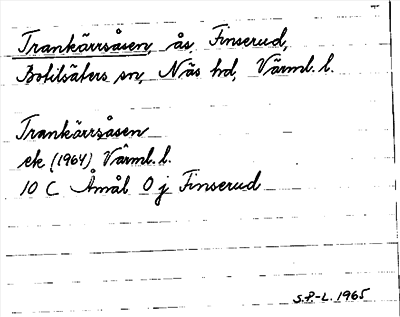 Trankärrsåsen, ås, Finserud,
Botilsäters sn, Näs hd, Värml. l.
Trankärrsåsen
ek (1964) Värml. l.
10 C Åmål 0 j Finserud
S.P-L. 1965